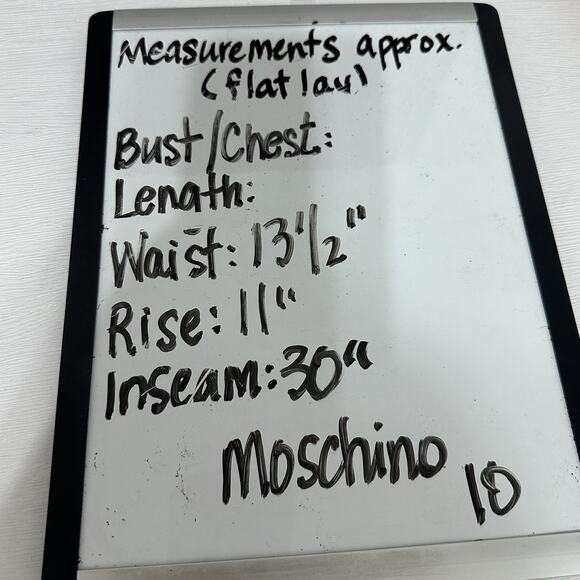 Measurements approx.
(flat lay)
Bust/Chest:
Length:
Waist: 13 1/2"
Rise: 11"
Inseam: 30"
Moschino
10